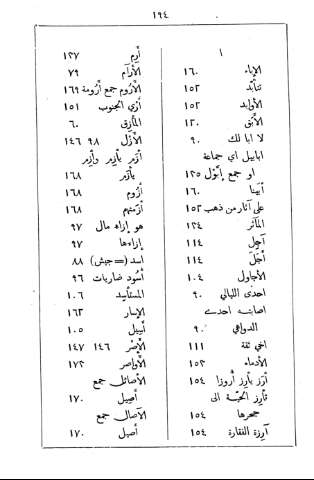 ١٩٤
ا
الإباء ١٦٠
تأبّد ١٥٢
الأوابد ١٥٢
الأبق ١٢٠
لا ابا لك ٩٠
ابابيل اي جماعة
او جمع إبّول ١٢٥
أبينا ١٦٠
على آثار من ذهب ١٥٢
المآثر ١٢٤
آجل ١١٤
أجل ١١٤
الأجاول ١٠٤
احدى الليالي ٩٠
اصابته احدى
الدواهي ٩٠
اخي ثقة ١١١
الأدماء ١٥٢
أرز يأرز أروزا ١٥٤
تأرز الحيّة الى
جحرها ١٥٤
آرزة الفقارة ١٥٤
أرم ١٢٧
الأرآم ٧٩
الأروم جمع أرومة ١٦٩
أزي الجنوب ١٥١
المأزق ٦٠
الأزل ٩٨ ١٤٦
ازم يأزم وأزم
يأزم ١٦٨
أزوم ١٦٨
أزمتهم ١٦٨
هو إزاء مال ٩٧
إزاءها ٩٧
اسد (= جيش) ٨٨
أسود ضاريات ٩٦
المستأسد ١٠٦
الإسار ١٦٢
أسيل ١٠٥
الأصر ١٤٦ ١٤٧
الأواصر ١٧٢
الأصائل جمع
أصيل ١٧٠
الآصال جمع
أصيل ١٧٠